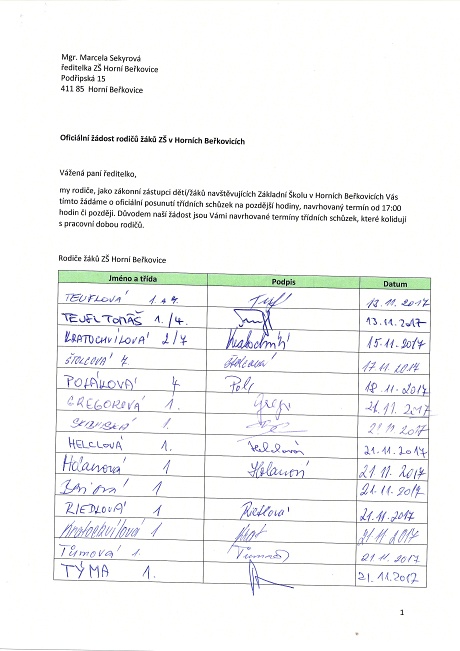 Mgr. Marcela Sekyrová
ředitelka ZŠ Horní Beřkovice
Podřipská 15
411 85 Horní Beřkovice
Oficiální žádost rodičů žáků ZŠ v Horních Beřkovicích
Vážená paní ředitelko,
my rodiče, jako zákonní zástupci dětí/žáků navštěvujících Základní Školu v Horních Beřkovicích Vás
tímto žádáme o oficiální posunutí třídních schůzek na pozdější hodiny, navrhovaný termín od 17:00
hodin či později. Důvodem naší žádost jsou Vámi navrhované termíny třídních schůzek, které kolidují
s pracovní dobou rodičů.
Rodiče žáků ZŠ Horní Beřkovice
Jméno a třída Podpis Datum
TEUFLOVÁ 13.11.2017
TEUFL TOMÁŠ 1./4. 13.11.2017
KRATOCHVÍLOVÁ 2/7 15.11.2017
17.11.2017
POLÁKOVÁ 18.11.2017
GREGOROVÁ 1. 21.11.2017
1. 21.11.2017
HELCLOVÁ 1. Helclová 21.11.2017
Holanová 1 Holanová 21.11.2017
1 21.11.2017
RIEDLOVÁ 1 Riedlová 21.11.2017
Kratochvílová 1 21.11.2017
Tůmová 1. Tůmová 21.11.2017
TÝMA 1. 21.11.2017
1